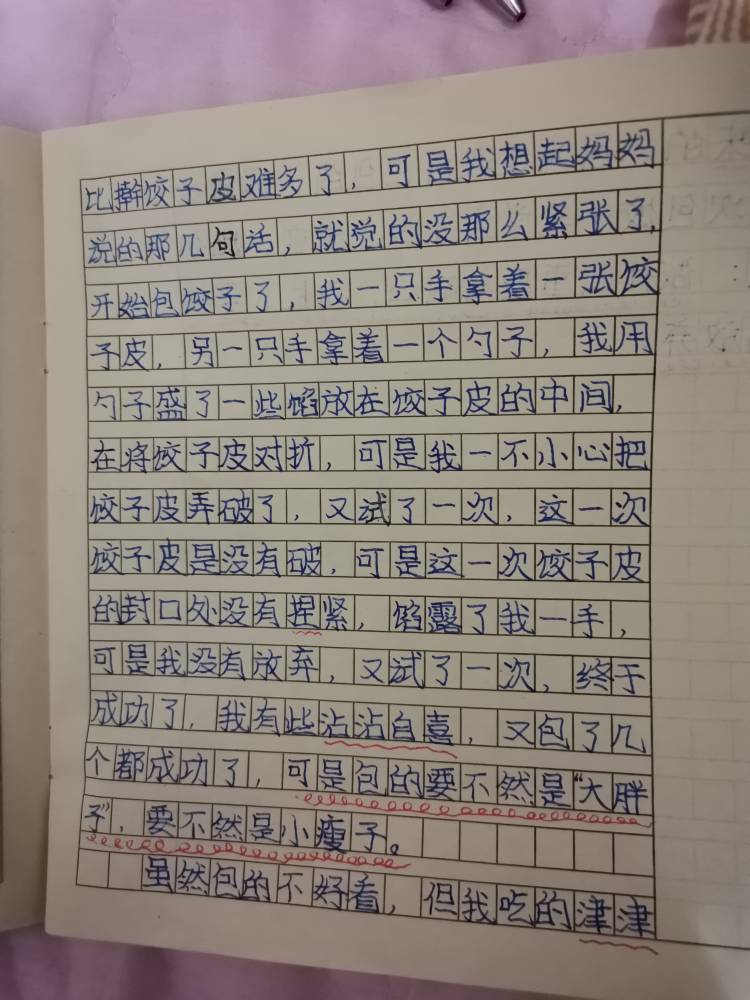 比擀饺子皮难多了，可是我想起妈妈
说的那几句话，就觉的没那么紧张了，
开始包饺子了，我一只手拿着一张饺
子皮，另一只手拿着一个勺子，我用
勺子盛了一些馅放在饺子皮的中间，
在将饺子皮对折，可是我一不小心把
饺子皮弄破了，又试了一次，这一次
饺子皮是没有破，可是这一次饺子皮
的封口处没有捏紧，馅露了我一手，
可是我没有放弃，又试了一次，终于
成功了，我有些沾沾自喜，又包了几
个都成功了，可是包的要不然是“大胖
子”，要不然是小瘦子。
虽然包的不好看，但我吃的津津